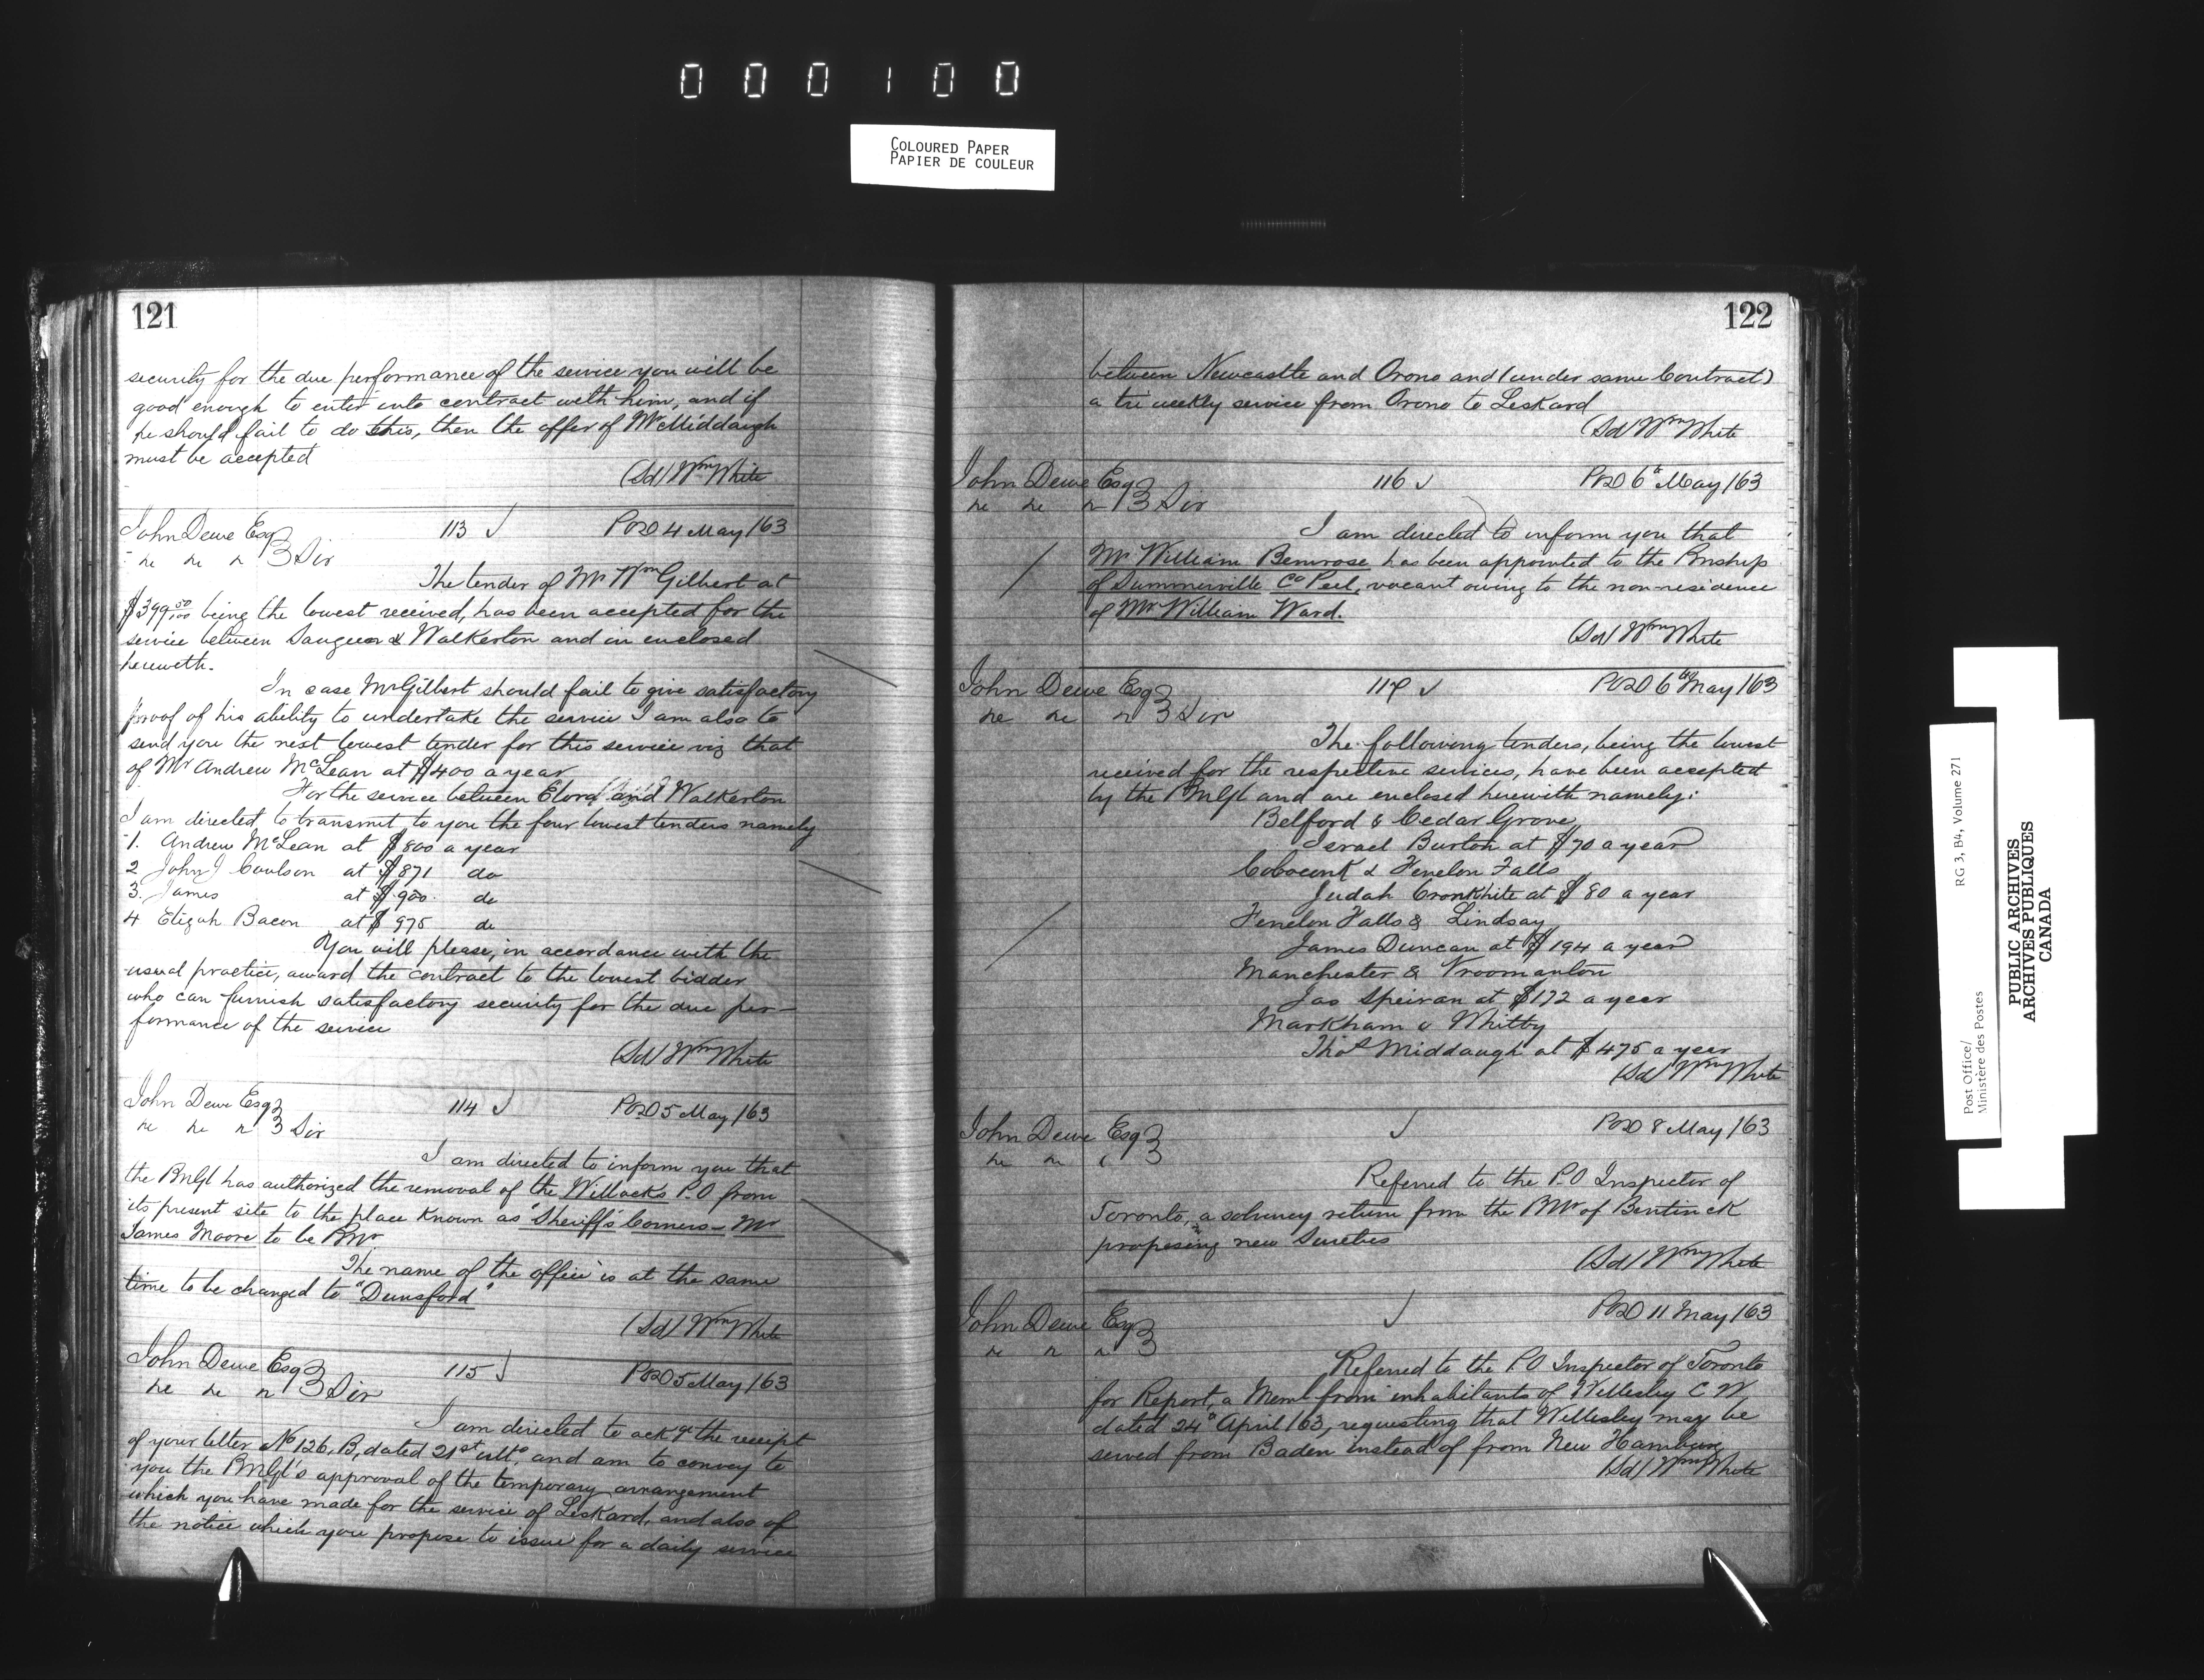 000100
COLOURED PAPER
PAPIER DE COULEUR
121
security for the due performance of the service you will be
good enough to enter into contract with him, and if
he should fail to do this, then the offer of Mr Middaugh
must be accepted
(Sd) Wm White
John Dewe Esq 113 POD 4 May /63
Sir
The tender of Mr Wm Gilbert at
$399 50/100 being the lowest received, has been accepted for the
service between Saugeen & Walkerton and in enclosed
herewith.
In case Mr Gilbert should fail to give satisfactory
proof of his ability to undertake the service I am also to
send you the next lowest tender for this service viz that
of Mr Andrew McLean at $400 a year
For the service between Elora and Walkerton
I am directed to transmit to you the four lowest tenders namely
1. Andrew McLean at $800 a year
2 John J Coulson at $871 do
3. James at $900. do
4 Elijah Bacon at $975 do
You will please, in accordance with the
usual practice, award the contract to the lowest bidder
who can furnish satisfactory security for the due per-
formance of the service
(Sd) Wm White
John Dewe Esq 114 POD 5 May /63
Sir
I am directed to inform you that
the PMGl has authorized the removal of the Willocks P.O from
its present site to the place known as "Sheriff's Corners - Mr
James Moore to be PMr
The name of the office is at the same
time to be changed to "Dunsford"
(Sd) Wm White
John Dewe Esq 115 POD 5 May /63
Sir
I am directed to ackge the receipt
of your letter No 126. B, dated 21st ulto, and am to convey to
you the PMGl's approval of the temporary arrangement
which you have made for the service of Leskard, and also of
the notice which you propose to issue for a daily service
122
between Newcastle and Orono and (under same Contract)
a tri weekly service from Orono to Leskard
(Sd) Wm White
John Dewe Esq 116 POD 6th May /63
Sir
I am directed to inform you that
Mr William Bemrose has been appointed to the Pmship
of Summerville Co Peel, vacant owing to the non-residence
of Mr William Ward.
(Sd) Wm White
John Dewe Esq 117 POD 6th May /63
Sir
The following tenders, being the lowest
received for the respective services, have been accepted
by the PMGl and are enclosed herewith namely:
Belford & Cedar Grove
Israel Burton at $70 a year
Coboconk & Fenelon Falls
Judah Cronkhite at $80 a year
Fenelon Falls & Lindsay
James Duncan at $194 a year
Manchester & Vroomanton
Jas Speiran at $172 a year
Markham & Whitby
Thos Middaugh at $475 a year
(Sd) Wm White
John Dewe Esq POD 8 May /63
Referred to the P.O Inspector of
Toronto, a solvency return from the PMr of Bentinck
proposing new Sureties
(Sd) Wm White
John Dewe Esq POD 11 May /63
Referred to the P.O Inspector of Toronto
for Report, a Meml from inhabitants of Wellesley C W
dated 24th April /63, requesting that Wellesley may be
served from Baden instead of from New Hamburg
(Sd) Wm White
RG 3, B4, Volume 271
Post Office/
Ministère des Postes
PUBLIC ARCHIVES
ARCHIVES PUBLIQUES
CANADA